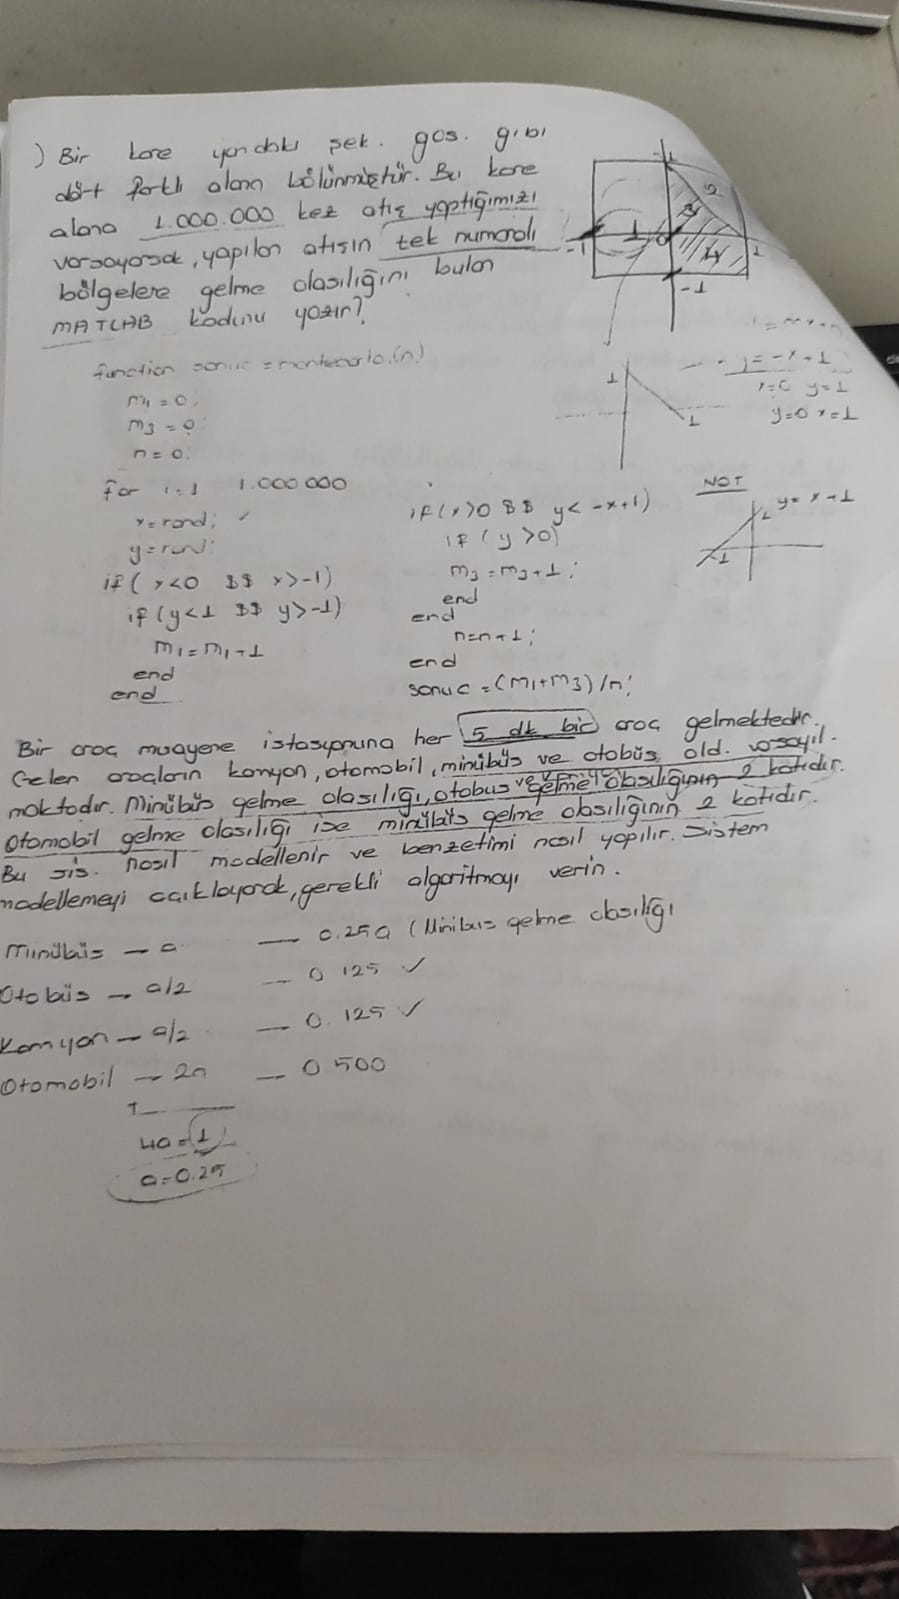 ) Bir kare yandaki şek. gös. gibi
dört farklı alana bölünmüştür. Bu kare
alana 1.000.000 kez atış yaptığımızı
varsayarsak, yapılan atışın tek numaralı
bölgelere gelme olasılığını bulan
MATLAB kodunu yazın?
1
2
3
-1
1
0
1
4
-1
function sonuc = montecarlo(n)
m1 = 0;
m3 = 0;
n = 0;
for i=1 1.000.000
x = rand; ✓
y = rand;
if( x<0 && x>-1)
if (y<1 && y>-1)
m1 = m1+1
end
end
if(x>0 && y< -x+1)
if (y>0)
m3 = m3+1;
end
end
n=n+1;
end
sonuc = (m1+m3)/n;
y = -x+1
x=0 y=1
y=0 x=1
1
1
NOT
y = x+1
1
-1
Bir araç muayene istasyonuna her 5 dk bir araç gelmektedir.
Gelen araçların kamyon, otomobil, minübüs ve otobüs old. varsayıl-
maktadır. Minübüs gelme olasılığı, otobüs ve gelme olasılığının 2 katıdır.
Otomobil gelme olasılığı ise minübüs gelme olasılığının 2 katıdır.
Bu sis. nasıl modellenir ve benzetimi nasıl yapılır. Sistem
modellemeyi açıklayarak, gerekli algoritmayı verin.
Minübüs — a — 0.250 (Minibüs gelme olasılığı
Otobüs — a/2 — 0.125 ✓
Kamyon — a/2 — 0.125 ✓
Otomobil — 2a — 0.500
4a = 1
a = 0.25